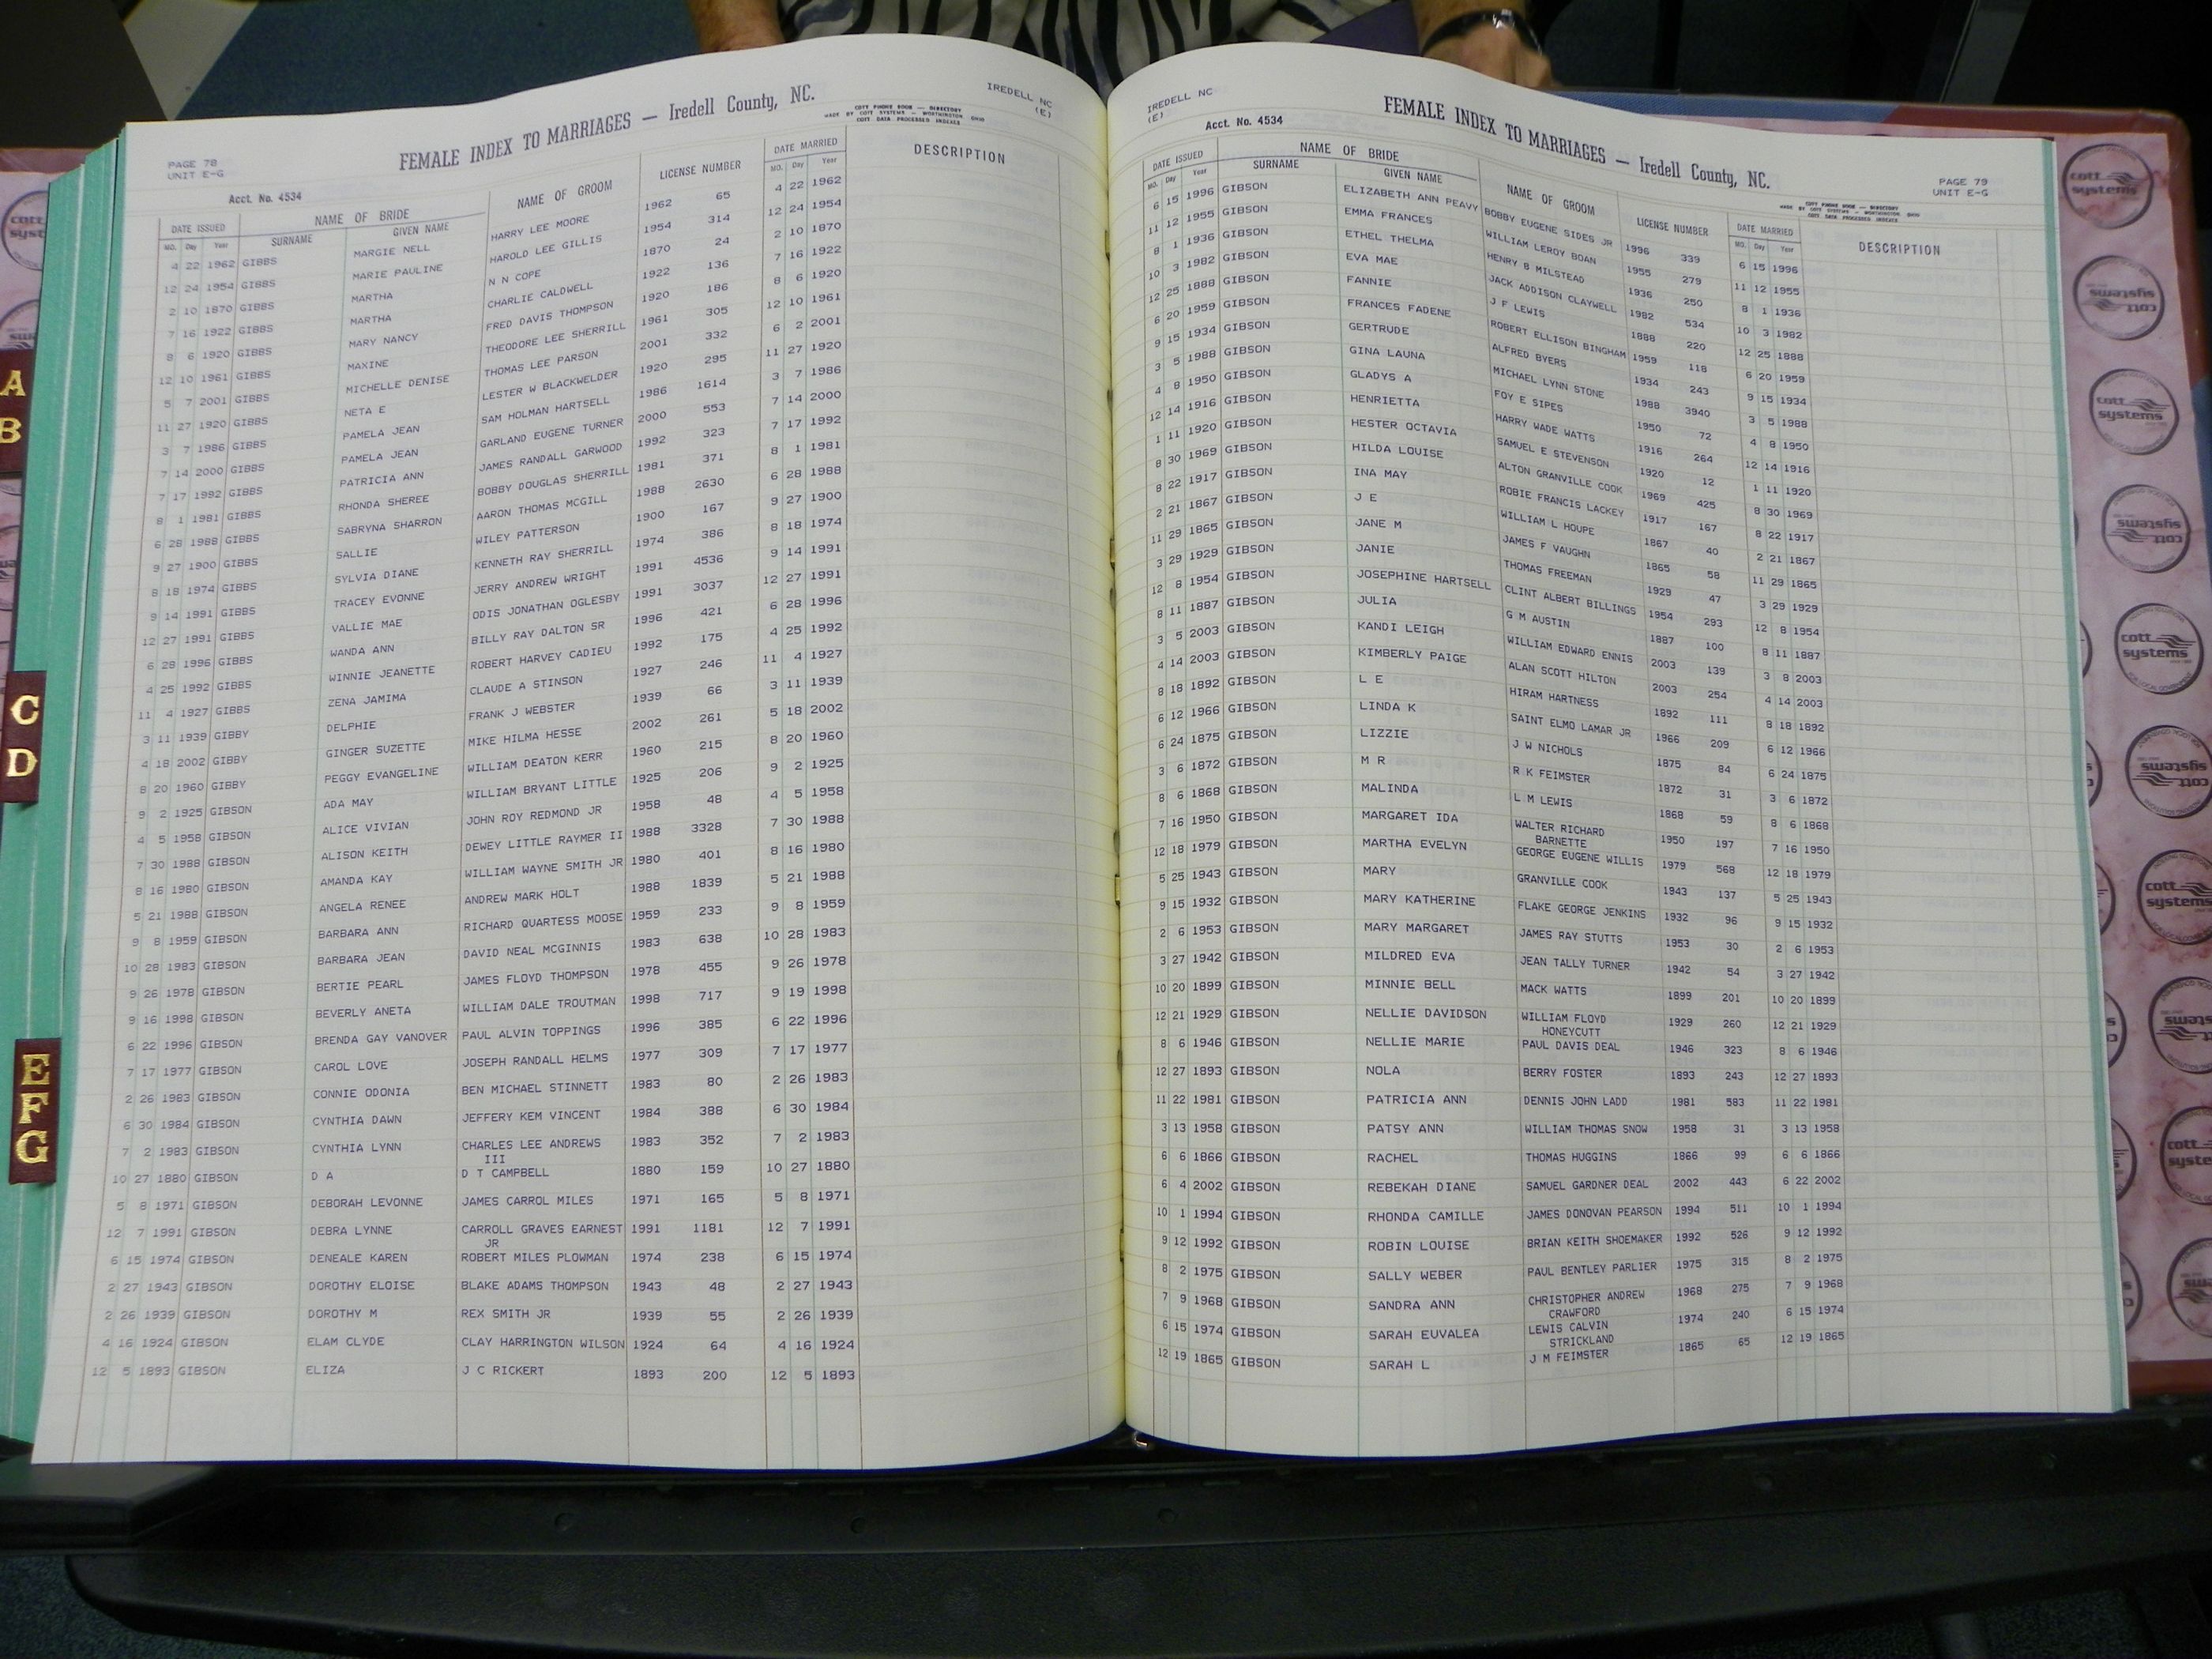 PAGE 78
UNIT E-G
FEMALE INDEX TO MARRIAGES — Iredell County, NC.
COTT PHONE BOOK — DIRECTORY
MADE BY COTT SYSTEMS — WORTHINGTON OHIO
COTT DATA PROCESSED INDEXES
IREDELL NC
(E)
Acct. No. 4534
DATE ISSUED NAME OF BRIDE NAME OF GROOM LICENSE NUMBER DATE MARRIED DESCRIPTION
MO. Day Year SURNAME GIVEN NAME MO. Day Year
4 22 1962 GIBBS MARGIE NELL HARRY LEE MOORE 1962 65 4 22 1962
12 24 1954 GIBBS MARIE PAULINE HAROLD LEE GILLIS 1954 314 12 24 1954
2 10 1870 GIBBS MARTHA N N COPE 1870 24 2 10 1870
7 16 1922 GIBBS MARTHA CHARLIE CALDWELL 1922 136 7 16 1922
8 6 1920 GIBBS MARY NANCY FRED DAVIS THOMPSON 1920 186 8 6 1920
12 10 1961 GIBBS MAXINE THEODORE LEE SHERRILL 1961 305 12 10 1961
5 7 2001 GIBBS MICHELLE DENISE THOMAS LEE PARSON 2001 332 6 2 2001
11 27 1920 GIBBS NETA E LESTER W BLACKWELDER 1920 295 11 27 1920
3 7 1986 GIBBS PAMELA JEAN SAM HOLMAN HARTSELL 1986 1614 3 7 1986
7 14 2000 GIBBS PAMELA JEAN GARLAND EUGENE TURNER 2000 553 7 14 2000
7 17 1992 GIBBS PATRICIA ANN JAMES RANDALL GARWOOD 1992 323 7 17 1992
8 1 1981 GIBBS RHONDA SHEREE BOBBY DOUGLAS SHERRILL 1981 371 8 1 1981
6 28 1988 GIBBS SABRYNA SHARRON AARON THOMAS MCGILL 1988 2630 6 28 1988
9 27 1900 GIBBS SALLIE WILEY PATTERSON 1900 167 9 27 1900
8 18 1974 GIBBS SYLVIA DIANE KENNETH RAY SHERRILL 1974 386 8 18 1974
9 14 1991 GIBBS TRACEY EVONNE JERRY ANDREW WRIGHT 1991 4536 9 14 1991
12 27 1991 GIBBS VALLIE MAE ODIS JONATHAN OGLESBY 1991 3037 12 27 1991
6 28 1996 GIBBS WANDA ANN BILLY RAY DALTON SR 1996 421 6 28 1996
4 25 1992 GIBBS WINNIE JEANETTE ROBERT HARVEY CADIEU 1992 175 4 25 1992
11 4 1927 GIBBS ZENA JAMIMA CLAUDE A STINSON 1927 246 11 4 1927
3 11 1939 GIBBY DELPHIE FRANK J WEBSTER 1939 66 3 11 1939
4 18 2002 GIBBY GINGER SUZETTE MIKE HILMA HESSE 2002 261 5 18 2002
8 20 1960 GIBBY PEGGY EVANGELINE WILLIAM DEATON KERR 1960 215 8 20 1960
9 2 1925 GIBSON ADA MAY WILLIAM BRYANT LITTLE 1925 206 9 2 1925
4 5 1958 GIBSON ALICE VIVIAN JOHN ROY REDMOND JR 1958 48 4 5 1958
7 30 1988 GIBSON ALISON KEITH DEWEY LITTLE RAYMER II 1988 3328 7 30 1988
8 16 1980 GIBSON AMANDA KAY WILLIAM WAYNE SMITH JR 1980 401 8 16 1980
5 21 1988 GIBSON ANGELA RENEE ANDREW MARK HOLT 1988 1839 5 21 1988
9 8 1959 GIBSON BARBARA ANN RICHARD QUARTESS MOOSE 1959 233 9 8 1959
10 28 1983 GIBSON BARBARA JEAN DAVID NEAL MCGINNIS 1983 638 10 28 1983
9 26 1978 GIBSON BERTIE PEARL JAMES FLOYD THOMPSON 1978 455 9 26 1978
9 16 1998 GIBSON BEVERLY ANETA WILLIAM DALE TROUTMAN 1998 717 9 19 1998
6 22 1996 GIBSON BRENDA GAY VANOVER PAUL ALVIN TOPPINGS 1996 385 6 22 1996
7 17 1977 GIBSON CAROL LOVE JOSEPH RANDALL HELMS 1977 309 7 17 1977
2 26 1983 GIBSON CONNIE ODONIA BEN MICHAEL STINNETT 1983 80 2 26 1983
6 30 1984 GIBSON CYNTHIA DAWN JEFFERY KEM VINCENT 1984 388 6 30 1984
7 2 1983 GIBSON CYNTHIA LYNN CHARLES LEE ANDREWS 1983 352 7 2 1983
III
10 27 1880 GIBSON D A D T CAMPBELL 1880 159 10 27 1880
5 8 1971 GIBSON DEBORAH LEVONNE JAMES CARROL MILES 1971 165 5 8 1971
12 7 1991 GIBSON DEBRA LYNNE CARROLL GRAVES EARNEST 1991 1181 12 7 1991
JR
6 15 1974 GIBSON DENEALE KAREN ROBERT MILES PLOWMAN 1974 238 6 15 1974
2 27 1943 GIBSON DOROTHY ELOISE BLAKE ADAMS THOMPSON 1943 48 2 27 1943
2 26 1939 GIBSON DOROTHY M REX SMITH JR 1939 55 2 26 1939
4 16 1924 GIBSON ELAM CLYDE CLAY HARRINGTON WILSON 1924 64 4 16 1924
12 5 1893 GIBSON ELIZA J C RICKERT 1893 200 12 5 1893
IREDELL NC
(E)
Acct. No. 4534
FEMALE INDEX TO MARRIAGES — Iredell County, NC.
PAGE 79
UNIT E-G
COTT PHONE BOOK — DIRECTORY
MADE BY COTT SYSTEMS — WORTHINGTON OHIO
COTT DATA PROCESSED INDEXES
DATE ISSUED NAME OF BRIDE NAME OF GROOM LICENSE NUMBER DATE MARRIED DESCRIPTION
MO. Day Year SURNAME GIVEN NAME MO. Day Year
6 15 1996 GIBSON ELIZABETH ANN PEAVY BOBBY EUGENE SIDES JR 1996 339 6 15 1996
11 12 1955 GIBSON EMMA FRANCES WILLIAM LEROY BOAN 1955 279 11 12 1955
8 1 1936 GIBSON ETHEL THELMA HENRY B MILSTEAD 1936 250 8 1 1936
10 3 1982 GIBSON EVA MAE JACK ADDISON CLAYWELL 1982 534 10 3 1982
12 25 1888 GIBSON FANNIE J F LEWIS 1888 220 12 25 1888
6 20 1959 GIBSON FRANCES FADENE ROBERT ELLISON BINGHAM 1959 118 6 20 1959
9 15 1934 GIBSON GERTRUDE ALFRED BYERS 1934 243 9 15 1934
3 5 1988 GIBSON GINA LAUNA MICHAEL LYNN STONE 1988 3940 3 5 1988
4 8 1950 GIBSON GLADYS A FOY E SIPES 1950 72 4 8 1950
12 14 1916 GIBSON HENRIETTA HARRY WADE WATTS 1916 264 12 14 1916
1 11 1920 GIBSON HESTER OCTAVIA SAMUEL E STEVENSON 1920 12 1 11 1920
8 30 1969 GIBSON HILDA LOUISE ALTON GRANVILLE COOK 1969 425 8 30 1969
8 22 1917 GIBSON INA MAY ROBIE FRANCIS LACKEY 1917 167 8 22 1917
2 21 1867 GIBSON J E WILLIAM L HOUPE 1867 40 2 21 1867
11 29 1865 GIBSON JANE M JAMES F VAUGHN 1865 58 11 29 1865
3 29 1929 GIBSON JANIE THOMAS FREEMAN 1929 47 3 29 1929
12 8 1954 GIBSON JOSEPHINE HARTSELL CLINT ALBERT BILLINGS 1954 293 12 8 1954
8 11 1887 GIBSON JULIA G M AUSTIN 1887 100 8 11 1887
3 5 2003 GIBSON KANDI LEIGH WILLIAM EDWARD ENNIS 2003 139 3 8 2003
4 14 2003 GIBSON KIMBERLY PAIGE ALAN SCOTT HILTON 2003 254 4 14 2003
8 18 1892 GIBSON L E HIRAM HARTNESS 1892 111 8 18 1892
6 12 1966 GIBSON LINDA K SAINT ELMO LAMAR JR 1966 209 6 12 1966
6 24 1875 GIBSON LIZZIE J W NICHOLS 1875 84 6 24 1875
3 6 1872 GIBSON M R R K FEIMSTER 1872 31 3 6 1872
8 6 1868 GIBSON MALINDA L M LEWIS 1868 59 8 6 1868
7 16 1950 GIBSON MARGARET IDA WALTER RICHARD 1950 197 7 16 1950
BARNETTE
12 18 1979 GIBSON MARTHA EVELYN GEORGE EUGENE WILLIS 1979 568 12 18 1979
5 25 1943 GIBSON MARY GRANVILLE COOK 1943 137 5 25 1943
9 15 1932 GIBSON MARY KATHERINE FLAKE GEORGE JENKINS 1932 96 9 15 1932
2 6 1953 GIBSON MARY MARGARET JAMES RAY STUTTS 1953 30 2 6 1953
3 27 1942 GIBSON MILDRED EVA JEAN TALLY TURNER 1942 54 3 27 1942
10 20 1899 GIBSON MINNIE BELL MACK WATTS 1899 201 10 20 1899
12 21 1929 GIBSON NELLIE DAVIDSON WILLIAM FLOYD 1929 260 12 21 1929
HONEYCUTT
8 6 1946 GIBSON NELLIE MARIE PAUL DAVIS DEAL 1946 323 8 6 1946
12 27 1893 GIBSON NOLA BERRY FOSTER 1893 243 12 27 1893
11 22 1981 GIBSON PATRICIA ANN DENNIS JOHN LADD 1981 583 11 22 1981
3 13 1958 GIBSON PATSY ANN WILLIAM THOMAS SNOW 1958 31 3 13 1958
6 6 1866 GIBSON RACHEL THOMAS HUGGINS 1866 99 6 6 1866
6 4 2002 GIBSON REBEKAH DIANE SAMUEL GARDNER DEAL 2002 443 6 22 2002
10 1 1994 GIBSON RHONDA CAMILLE JAMES DONOVAN PEARSON 1994 511 10 1 1994
9 12 1992 GIBSON ROBIN LOUISE BRIAN KEITH SHOEMAKER 1992 526 9 12 1992
8 2 1975 GIBSON SALLY WEBER PAUL BENTLEY PARLIER 1975 315 8 2 1975
7 9 1968 GIBSON SANDRA ANN CHRISTOPHER ANDREW 1968 275 7 9 1968
CRAWFORD
6 15 1974 GIBSON SARAH EUVALEA LEWIS CALVIN 1974 240 6 15 1974
STRICKLAND
12 19 1865 GIBSON SARAH L J M FEIMSTER 1865 65 12 19 1865
A
B
C
D
E
F
G
cott
systems
cott
systems
cott
systems
cott
systems
cott
systems
cott
systems